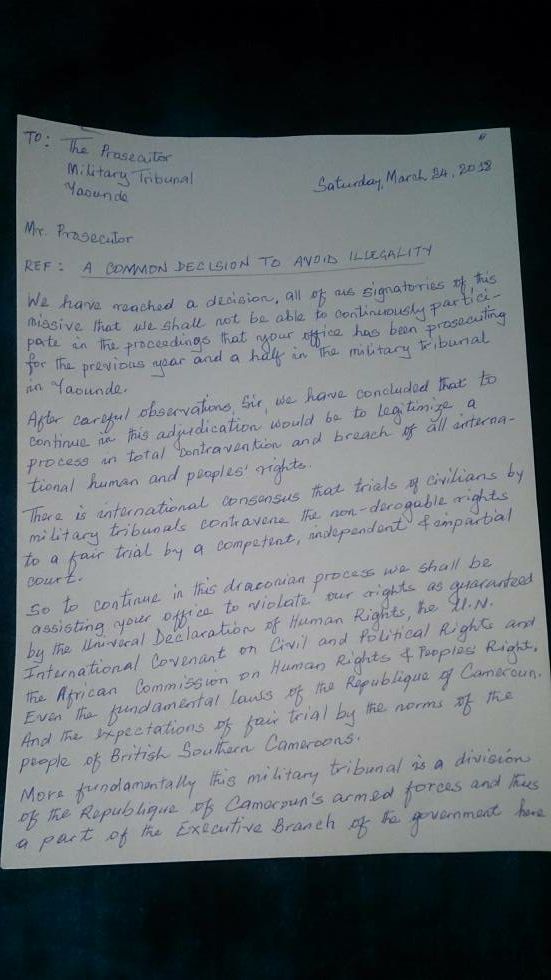 TO: The Prosecutor
Military Tribunal
Yaounde
Saturday, March 24, 2018
Mr. Prosecutor
REF: A COMMON DECISION TO AVOID ILLEGALITY
We have reached a decision, all of us signatories of this
missive that we shall not be able to continuously partici-
pate in the proceedings that your office has been prosecuting
for the previous year and a half in the military tribunal
in Yaounde.
After careful observations, Sir, we have concluded that to
continue in this adjudication would be to legitimize a
process in total contravention and breach of all interna-
tional human and peoples' rights.
There is international consensus that trials of civilians by
military tribunals contravene the non-derogable rights
to a fair trial by a competent, independent & impartial
court.
So to continue in this draconian process we shall be
assisting your office to violate our rights as guaranteed
by the Univeral Declaration of Human Rights, the U.N.
International Covenant on Civil and Political Rights and
the African Commission on Human Rights & Peoples' Right.
Even the fundamental laws of the Republique of Cameroun.
And the expectations of fair trial by the norms of the
people of British Southern Cameroons.
More fundamentally this military tribunal is a division
of the Republique of Cameroun's armed forces and thus
a part of the Executive Branch of the government here